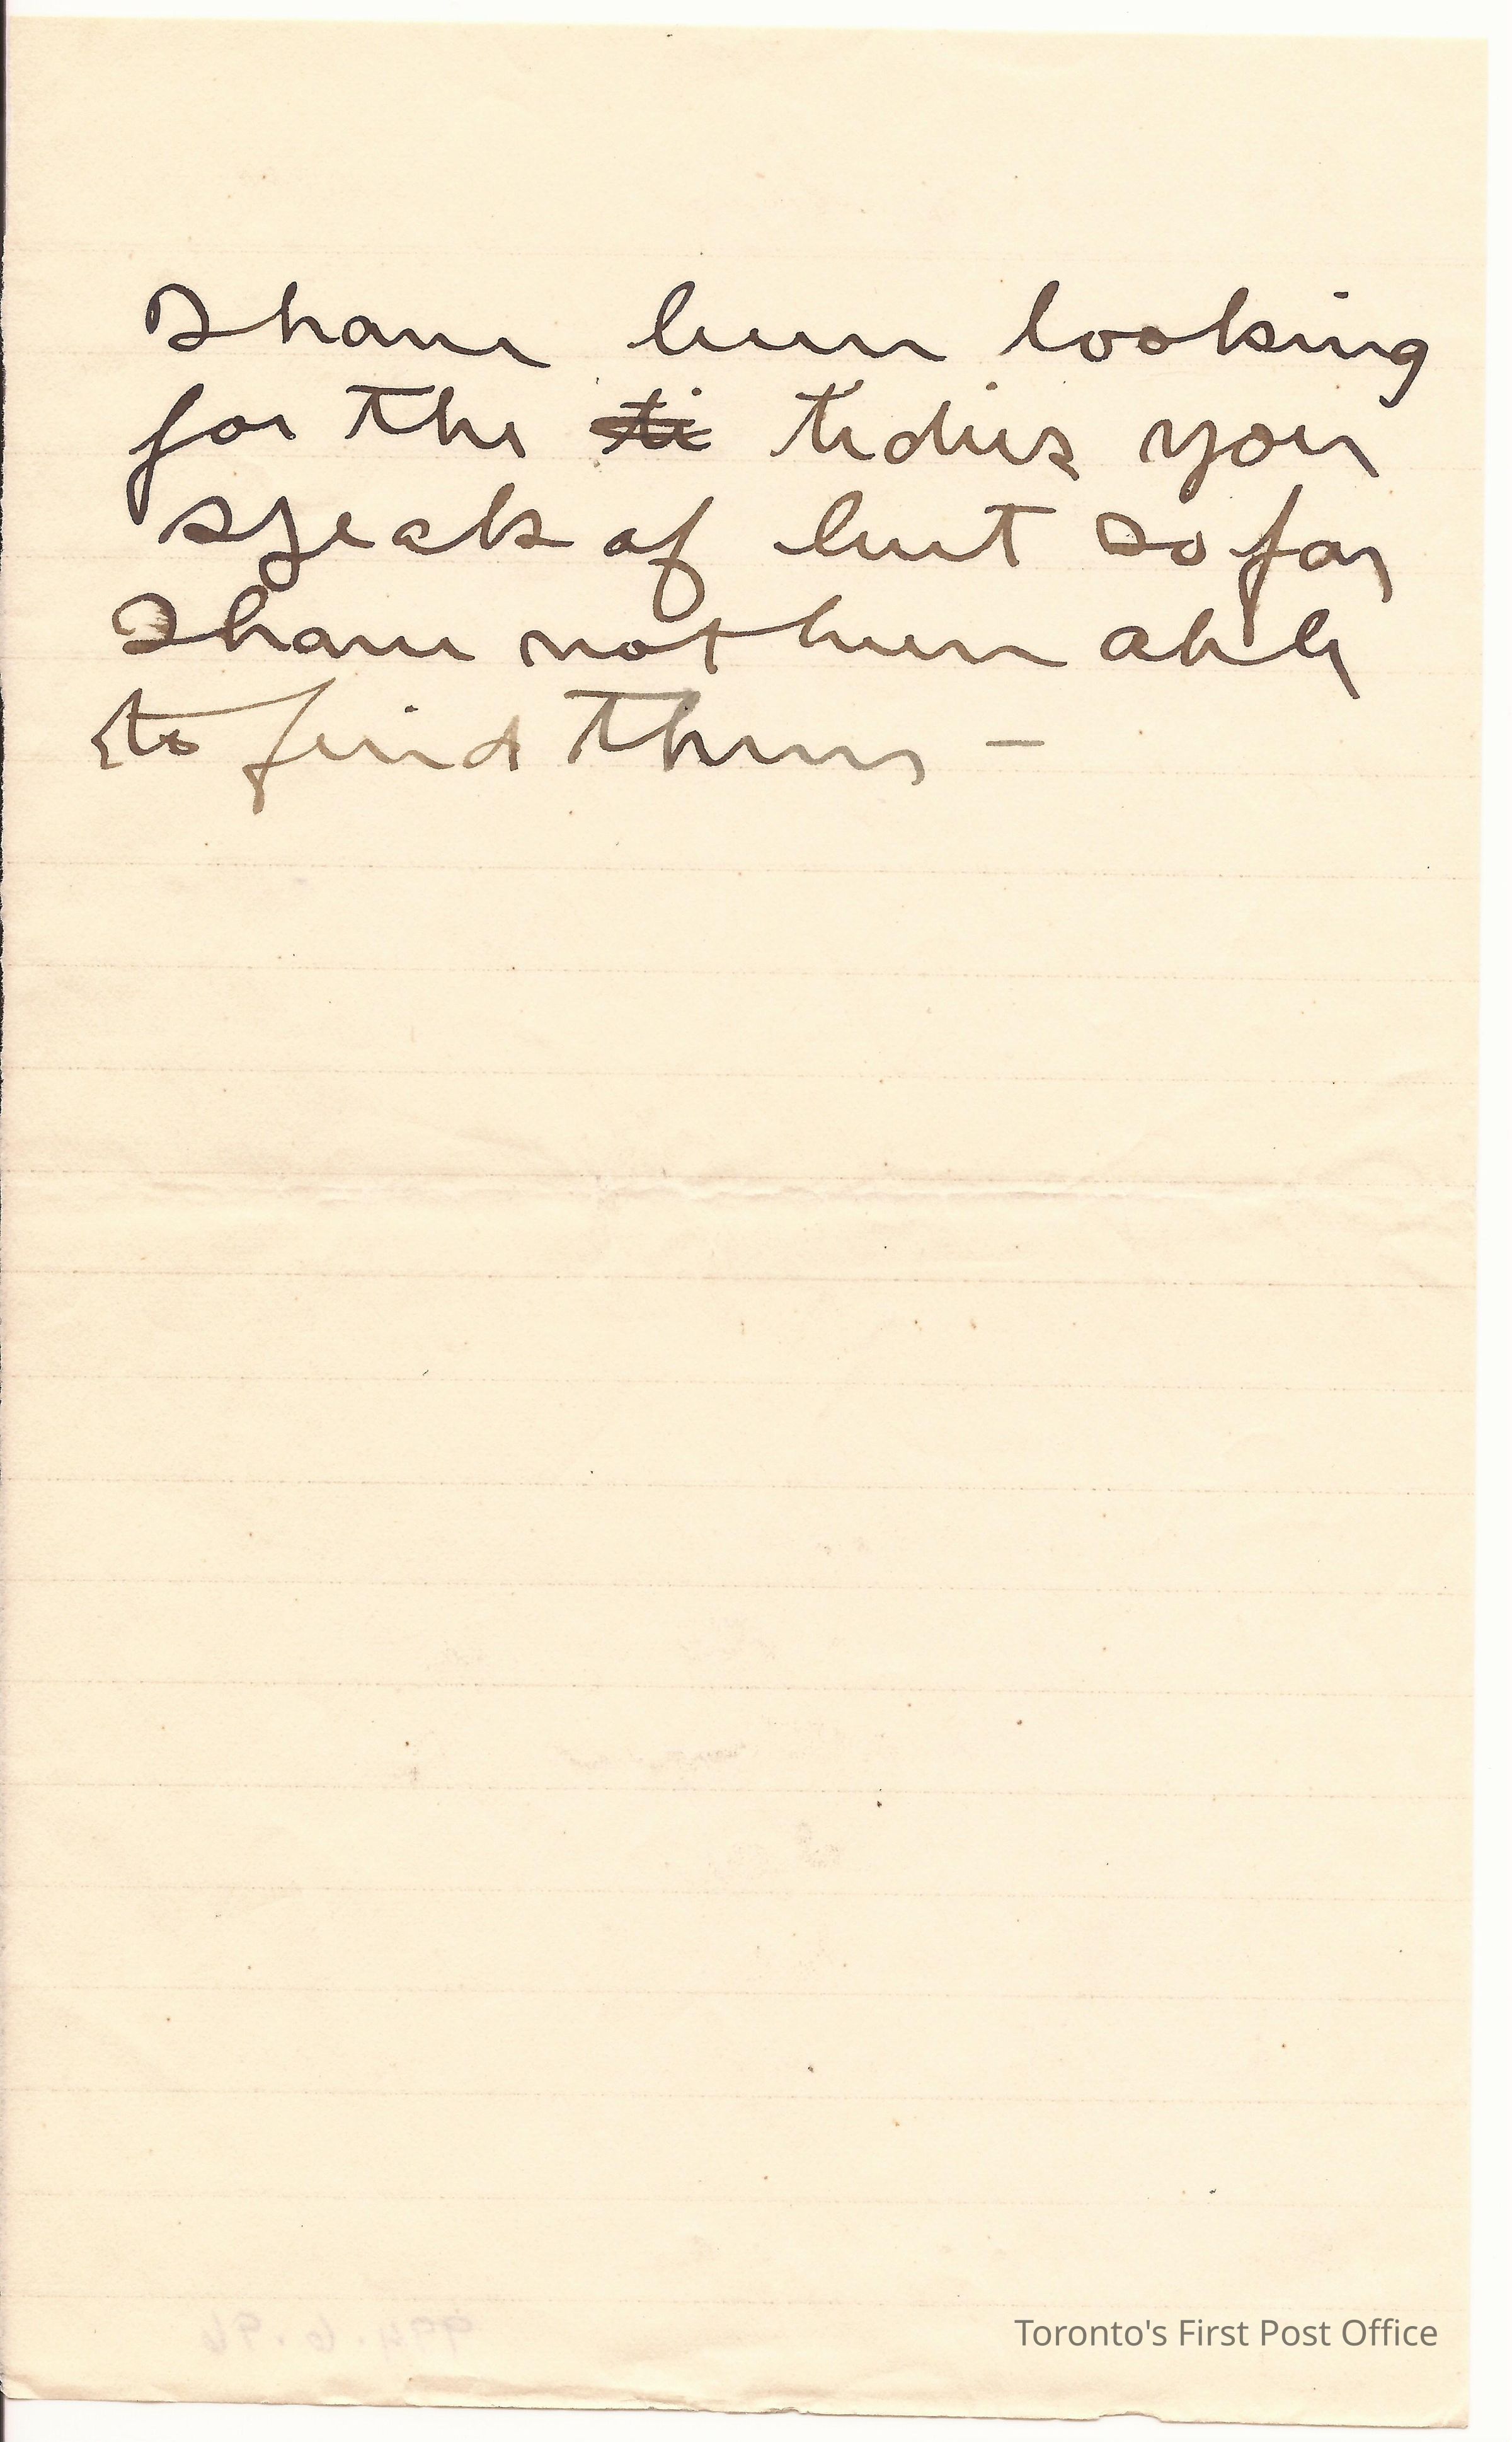 I have been looking
for the ti tidies you
speak of but so far
I have not been able
to find them –
Toronto's First Post Office